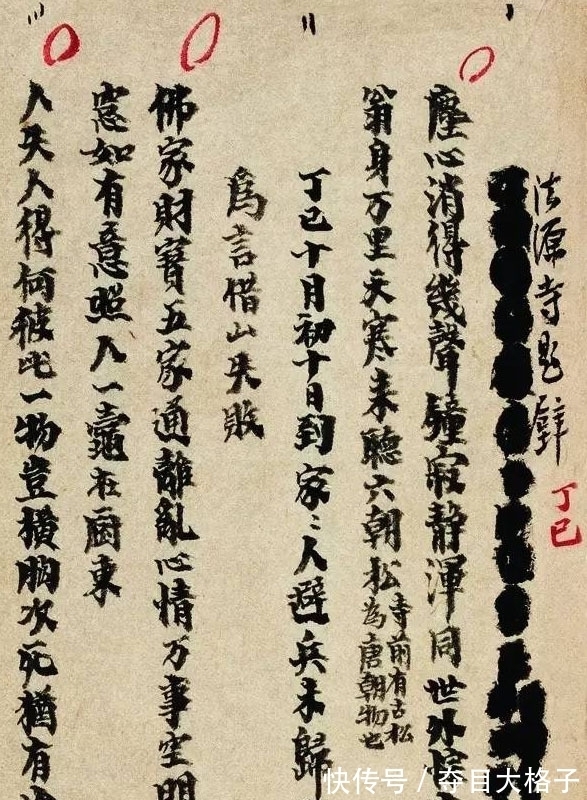 法源寺題壁
丁巳
塵心消得幾聲鐘寂静渾同世外
翁身万里天寒来聽六朝松
寺前有古松
為唐朝物也
丁巳十月初十日到家〻人避兵未歸
爲言借山失敗
佛家財寶五家通離亂心情万事空明
窓如有意照人一龕在厨東
人失人得何彼此一物豈横胸次死猶有
快传号/夺目大格子